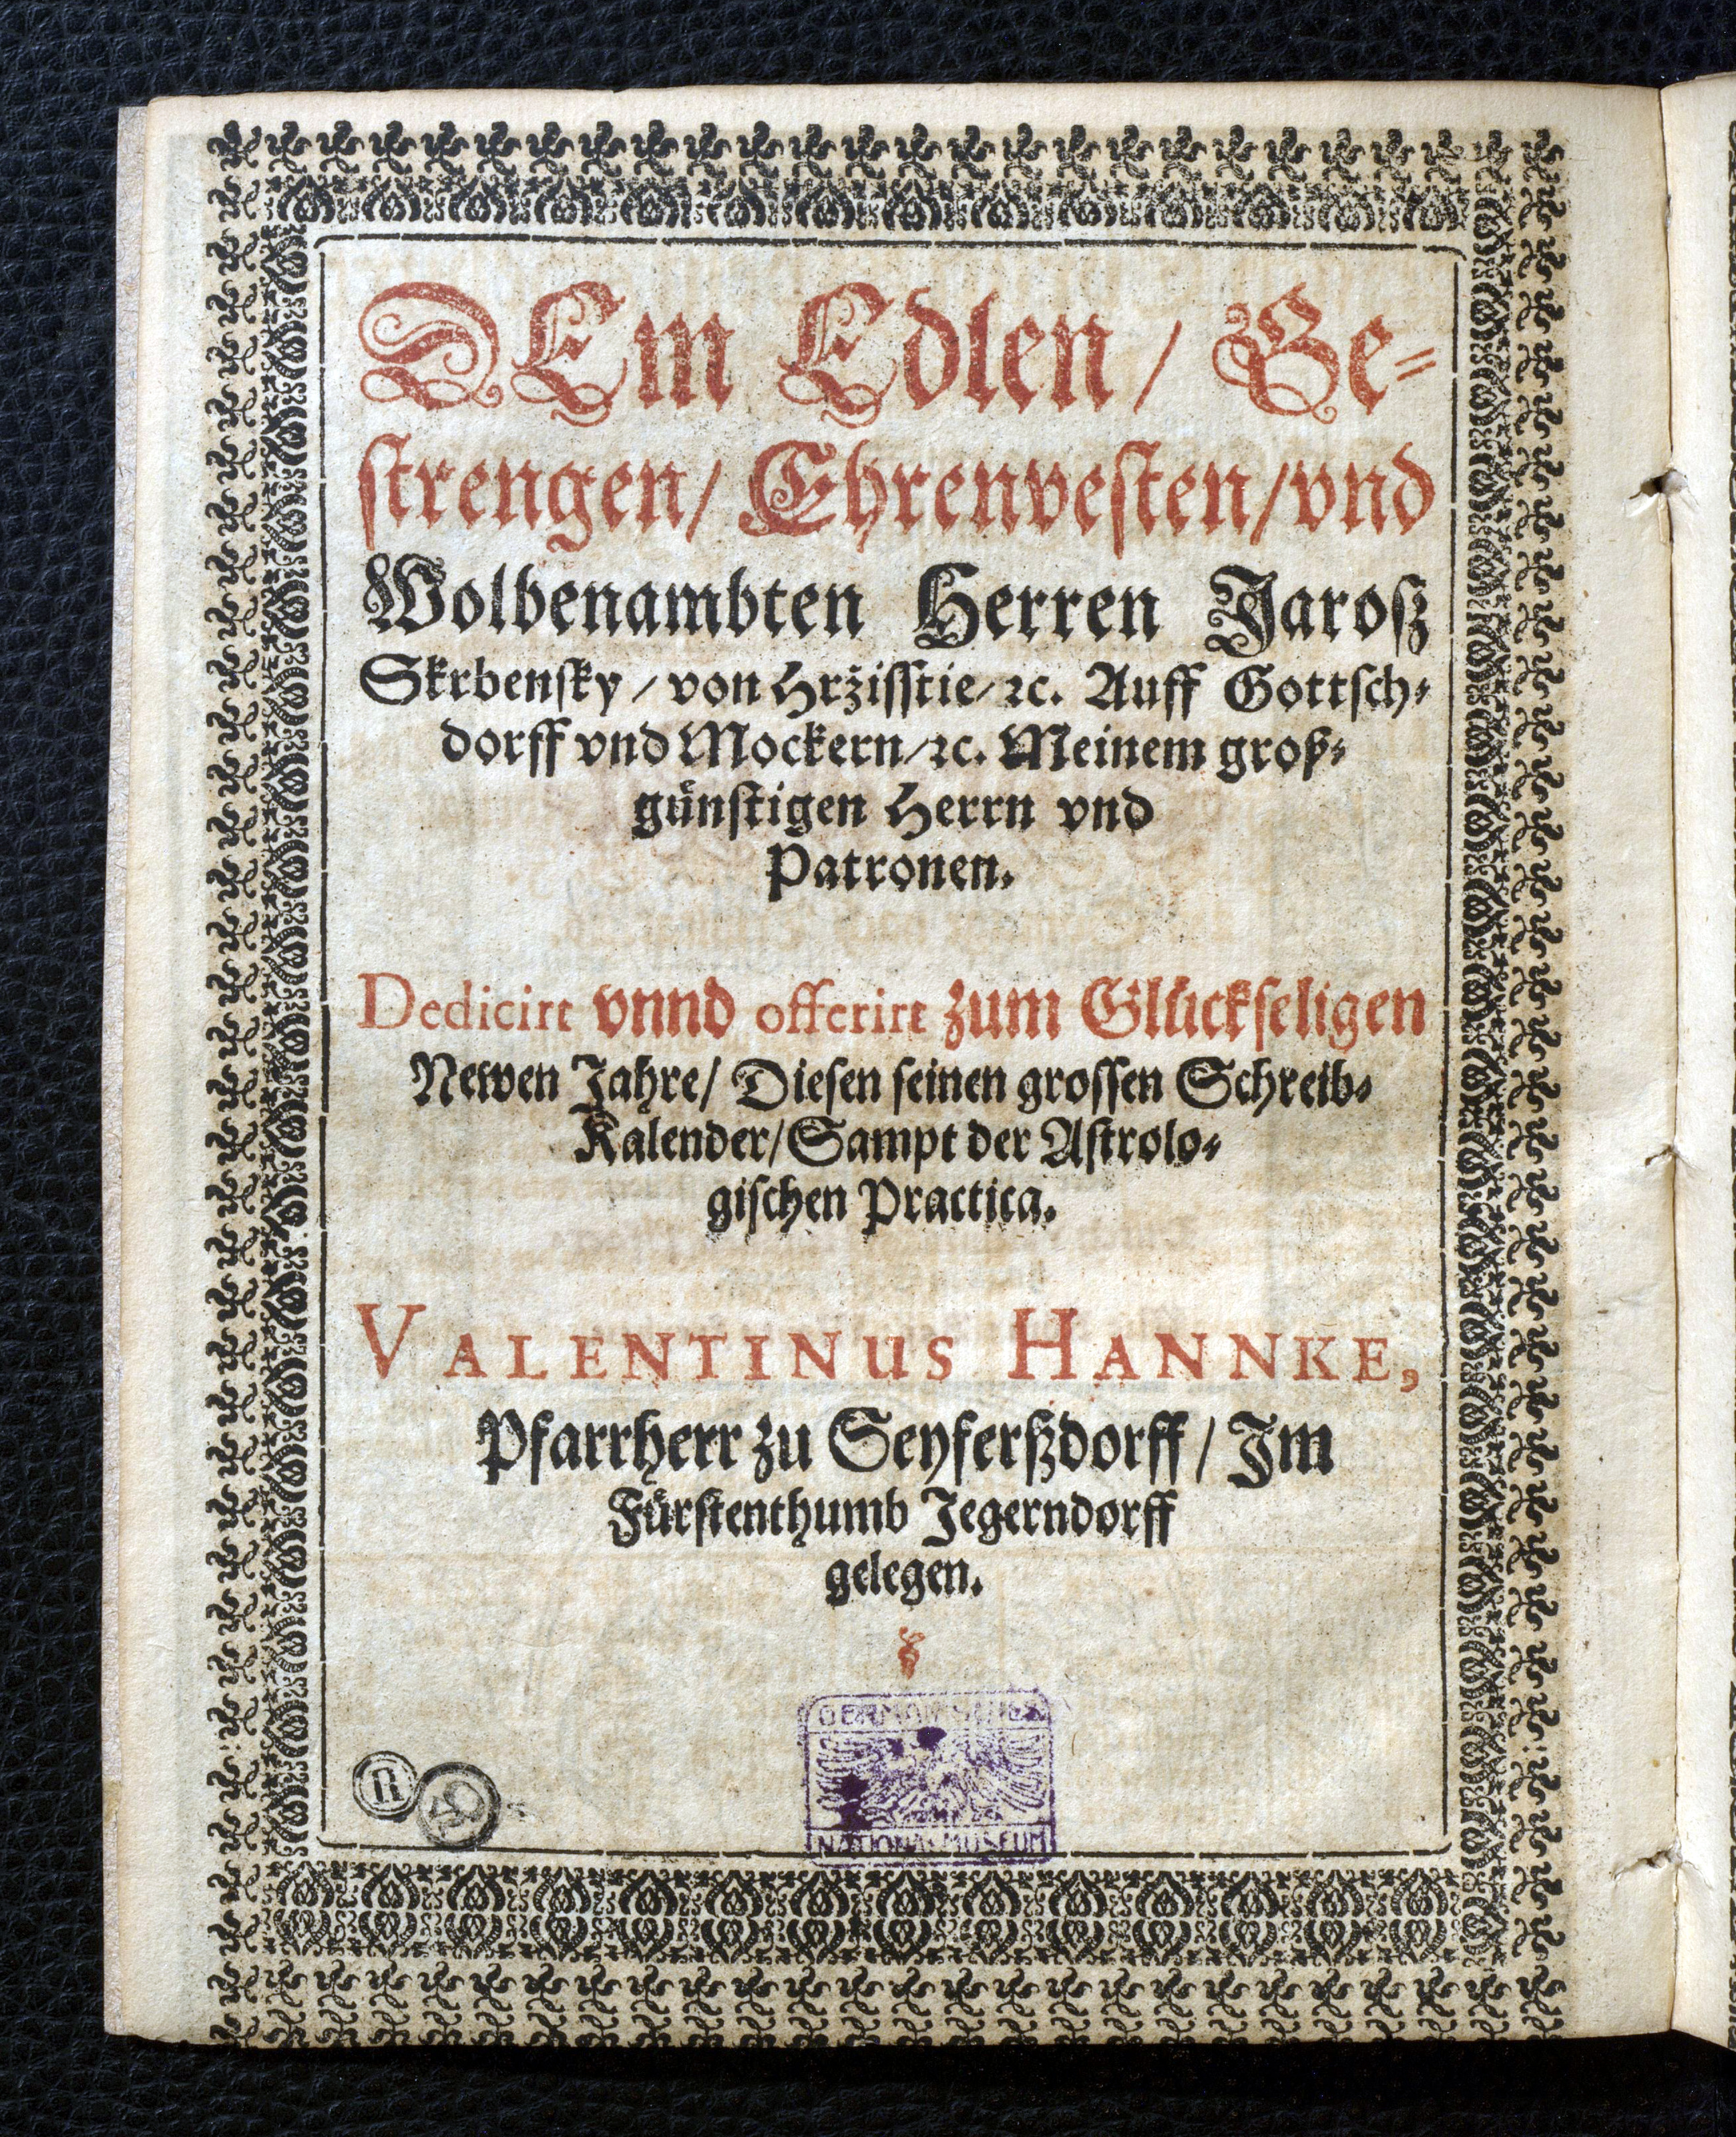 DEm Edlen / Ge=
strengen / Ehrenvesten / vnd
Wolbenambten Herren Jarosz
Skrbensky / von Hržisstie / ꝛc. Auff Gottsch=
dorff vnd Mockern / ꝛc. Meinem groß=
günstigen Herrn vnd
Patronen.
Dedicirt vnnd offerirt zum Glückseligen
Newen Jahre / Diesen seinen grossen Schreib=
Kalender / Sampt der Astrolo=
gischen Practica.
VALENTINUS HANNKE,
Pfarrherr zu Seyferßdorff / Im
Fürstenthumb Jegerndorff
gelegen.
GERMANISCHES
NATIONALMUSEUM
R